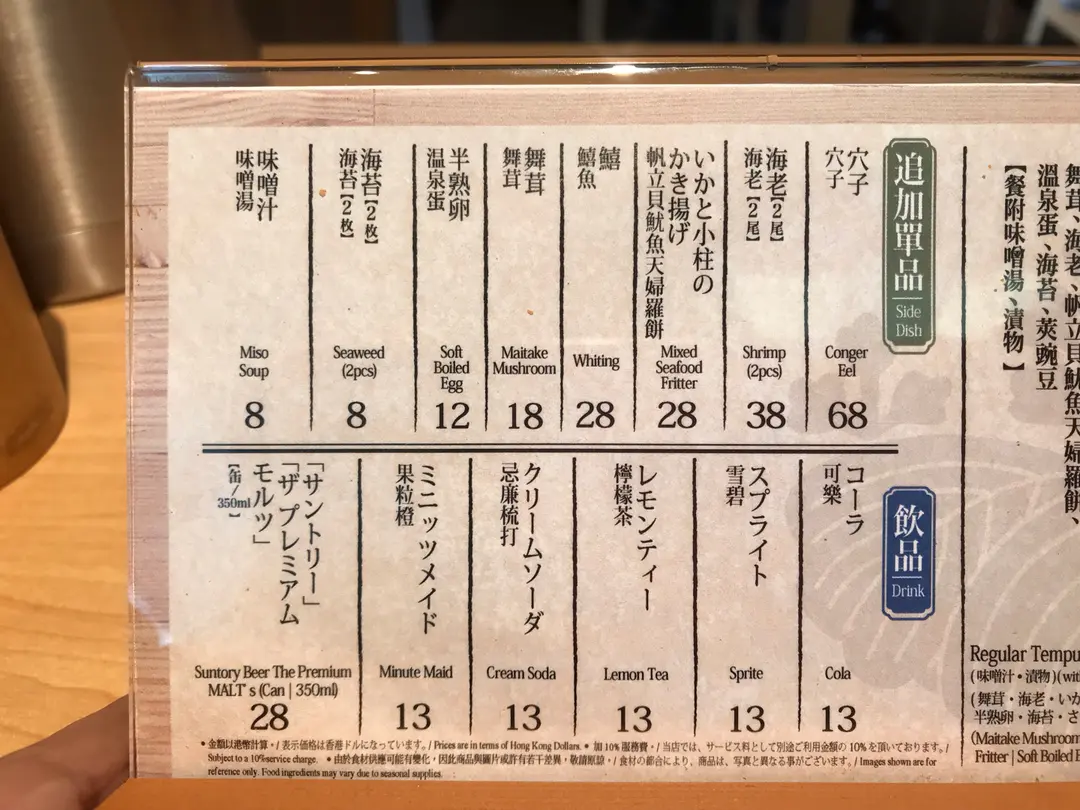 舞茸、海老、帆立貝魷魚天婦羅餅、
溫泉蛋、海苔、莢豌豆
【餐附味噌湯、漬物】
Regular Tempu
(味噌汁・漬物)(wit
(舞茸・海老・いか
半熟卵・海苔・さ
(Maitake Mushroom
Fritter | Soft Boiled E
追加單品
Side
Dish
穴子
穴子
Conger
Eel
68
海老【2尾】
海老【2尾】
Shrimp
(2pcs)
38
いかと小柱の
かき揚げ
帆立貝魷魚天婦羅餅
Mixed
Seafood
Fritter
28
鱚
鱚魚
Whiting
28
舞茸
舞茸
Maitake
Mushroom
18
半熟卵
温泉蛋
Soft
Boiled
Egg
12
海苔【2枚】
海苔【2枚】
Seaweed
(2pcs)
8
味噌汁
味噌湯
Miso
Soup
8
飲品
Drink
コーラ
可樂
Cola
13
スプライト
雪碧
Sprite
13
レモンティー
檸檬茶
Lemon Tea
13
クリームソーダ
忌廉梳打
Cream Soda
13
ミニッツメイド
果粒橙
Minute Maid
13
「サントリー」
「ザ プレミアム
モルツ」
【缶/350ml】
Suntory Beer The Premium
MALT's (Can | 350ml)
28
• 金額以港幣計算。/ 表示価格は香港ドルになっています。/ Prices are in terms of Hong Kong Dollars. • 加 10% 服務費。/ 当店では、サービス料として別途ご利用金額の 10% を頂いております。/
Subject to a 10% service charge. • 由於食材供應可能有變化，因此商品與圖片或許有若干差異，敬請原諒。/ 食材の都合により、商品は、写真と異なる事がございます。/ Images shown are for
reference only. Food ingredients may vary due to seasonal supplies.